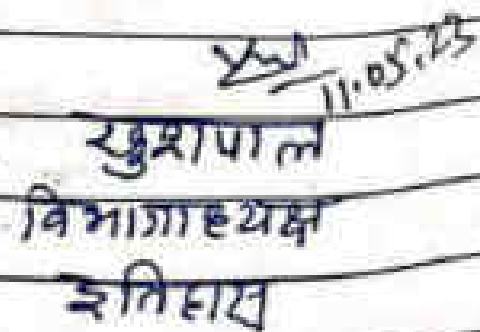 11.05.23
खुशपाल
विभागाध्यक्ष
इतिहास